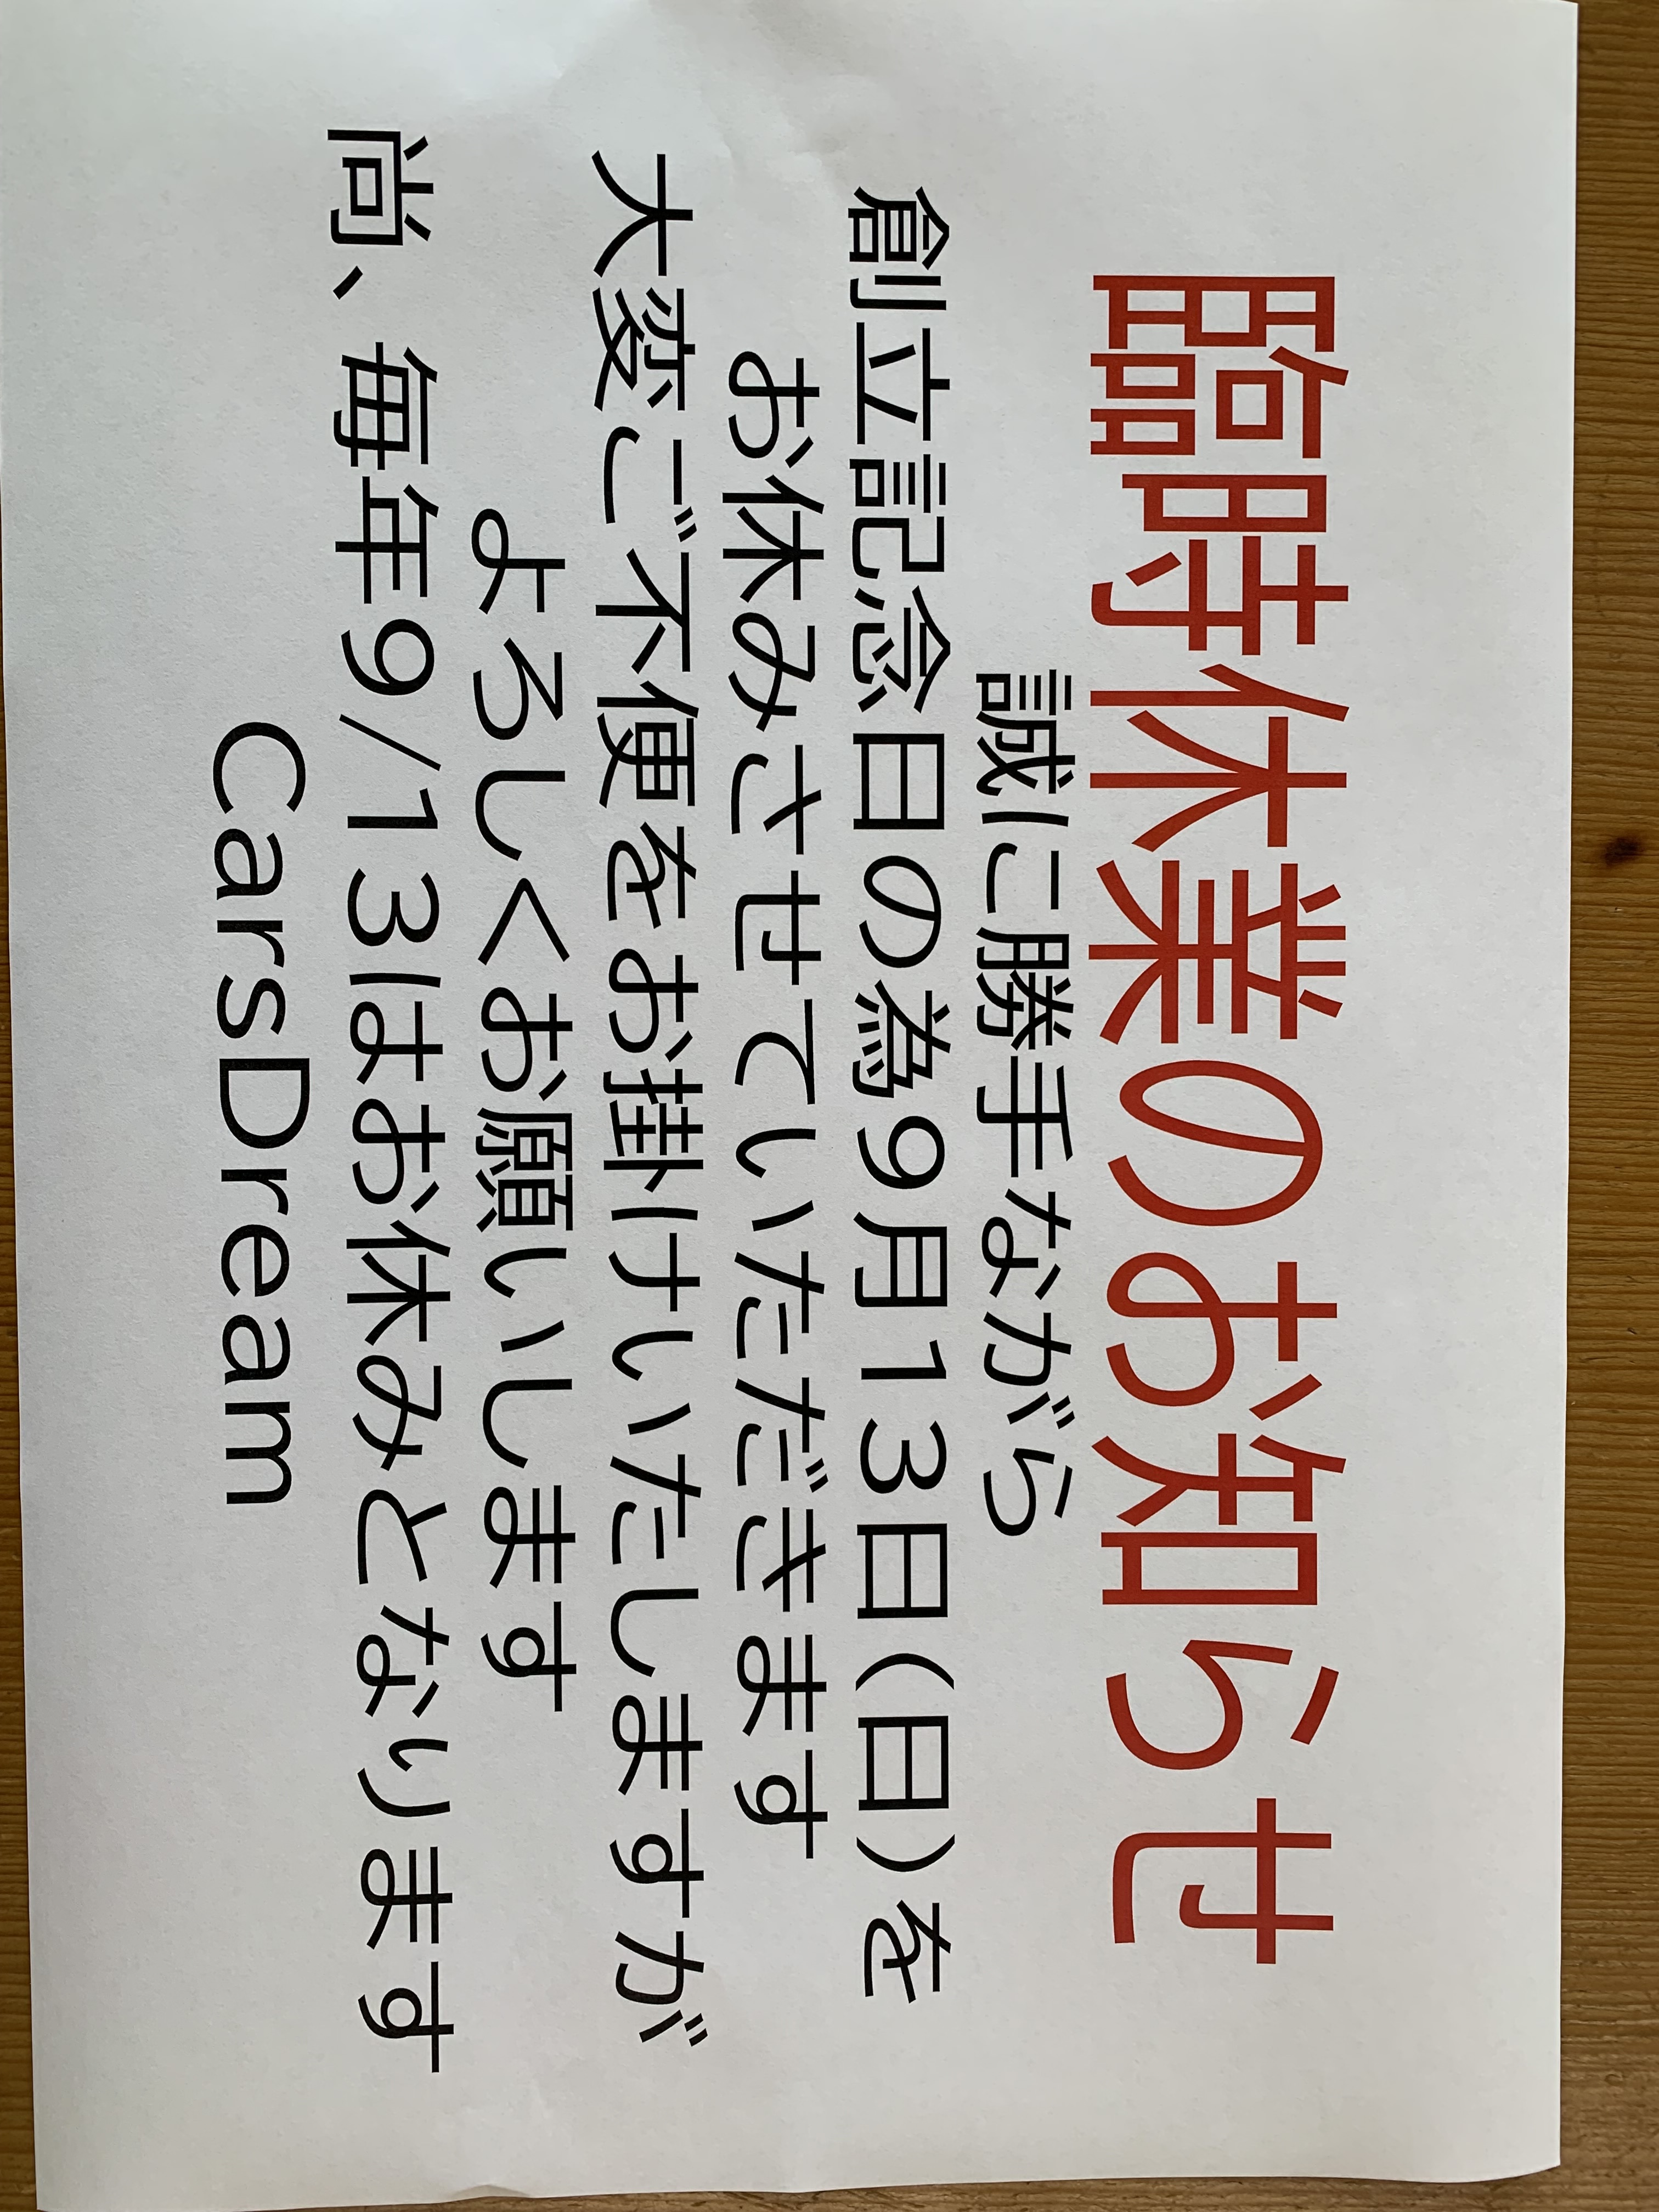 臨時休業のお知らせ
誠に勝手ながら
創立記念日の為9月13日(日)を
お休みさせていただきます
大変ご不便をお掛けいたしますが
よろしくお願いします
尚、毎年9/13はお休みとなります
CarsDream